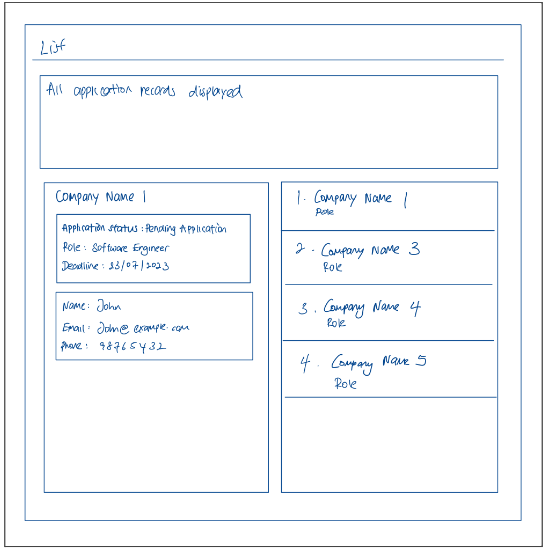 List
All application records displayed
Company Name 1
Application Status : Pending Application
Role : Software Engineer
Deadline : 23/07/2023
Name: John
Email: John@example.com
Phone: 98765432
1. Company Name 1
Role
2. Company Name 3
Role
3. Company Name 4
Role
4. Company Name 5
Role